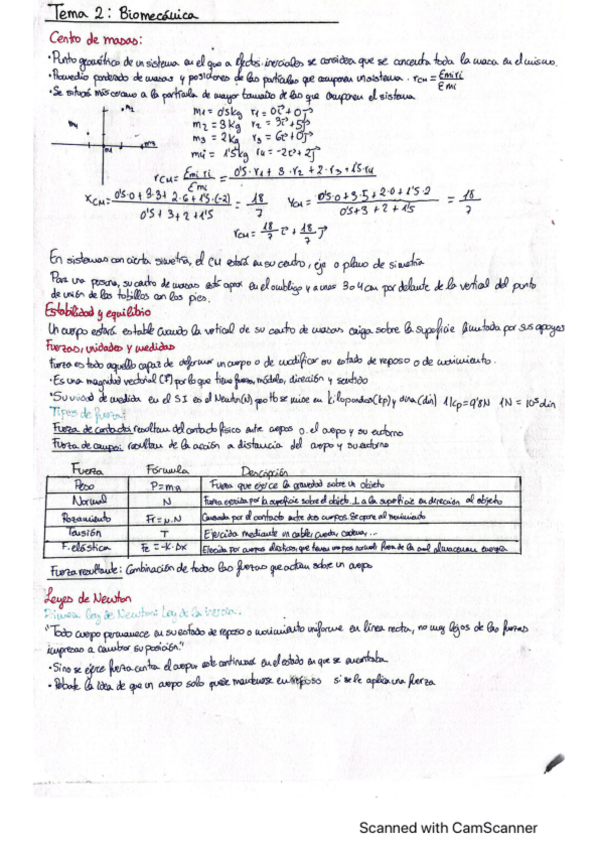 Tema 2: Biomecánica
Centro de masas:
· Punto geométrico de un sistema en el que a efectos inerciales se considera que se concentra toda la masa en el mismo.
· Promedio ponderado de masas y posiciones de las partículas que componen un sistema. rCM = Σmi ri / Σmi
· Se situará más cercano a la partícula de mayor tamaño de las que componen el sistema
m1 = 0'5kg r1 = 0i + 0j
m2 = 3kg r2 = 3i + 5j
m3 = 2kg r3 = 6i + 0j
m4 = 1'5kg r4 = -2i + 2j
rCM = Σmi ri / Σmi = 0'5·r1 + 3·r2 + 2·r3 + 1'5·r4
XCM = 0'5·0 + 3·3 + 2·6 + 1'5·(-2) / 0'5 + 3 + 2 + 1'5 = 18/7 YCM = 0'5·0 + 3·5 + 2·0 + 1'5·2 / 0'5 + 3 + 2 + 1'5 = 18/7
rCM = 18/7 i + 18/7 j
En sistemas con cierta simetría, el CM estará en su centro, eje o plano de simetría
Para una persona, su centro de masas está aprox en el ombligo y a unos 3 o 4 cm por delante de la vertical del punto
de unión de los tobillos con los pies.
Estabilidad y equilibrio
Un cuerpo estará estable cuando la vertical de su centro de masas caiga sobre la superficie limitada por sus apoyos
Fuerzas, unidades y medidas
Fuerza es todo aquello capaz de deformar un cuerpo o de modificar su estado de reposo o de movimiento.
· Es una magnitud vectorial (F) por lo que tiene fuerza, módulo, dirección y sentido
· Su unidad de medida en el SI es el Newton(N) pero tb se mide en kilopondios(kp) y dina(din) 1kp=9'8N 1N = 10⁵ din
Tipos de fuerza:
Fuerza de contacto: resultan del contacto físico entre cuerpos o el cuerpo y su entorno
Fuerza de campo: resultan de la acción a distancia del cuerpo y su entorno
Fuerza Fórmula Descripción
Peso P=mg Fuerza que ejerce la gravedad sobre un objeto
Normal N Fuerza ejercida por la superficie sobre el objeto ⊥ a la superficie en dirección al objeto
Rozamiento Fr=μ·N Causada por el contacto entre dos cuerpos. Se opone al movimiento
Tensión T Ejercida mediante un cable, cuerda, cadena...
F. elástica Fe = -K·Δx Ejercida por cuerpos elásticos, que tienen una pos normal fuera de la cual almacenan energía
Fuerza resultante: Combinación de todas las fuerzas que actúan sobre un cuerpo
Leyes de Newton
Primera Ley de Newton: Ley de la Inercia.
"Todo cuerpo permanece en su estado de reposo o movimiento uniforme en línea recta, no muy lejos de las fuerzas
impresas a cambiar su posición."
· Si no se ejerce fuerza contra el cuerpo este continuará en el estado en que se encontraba
· Rebate la idea de que un cuerpo solo puede mantenerse en reposo si se le aplica una fuerza
Scanned with CamScanner